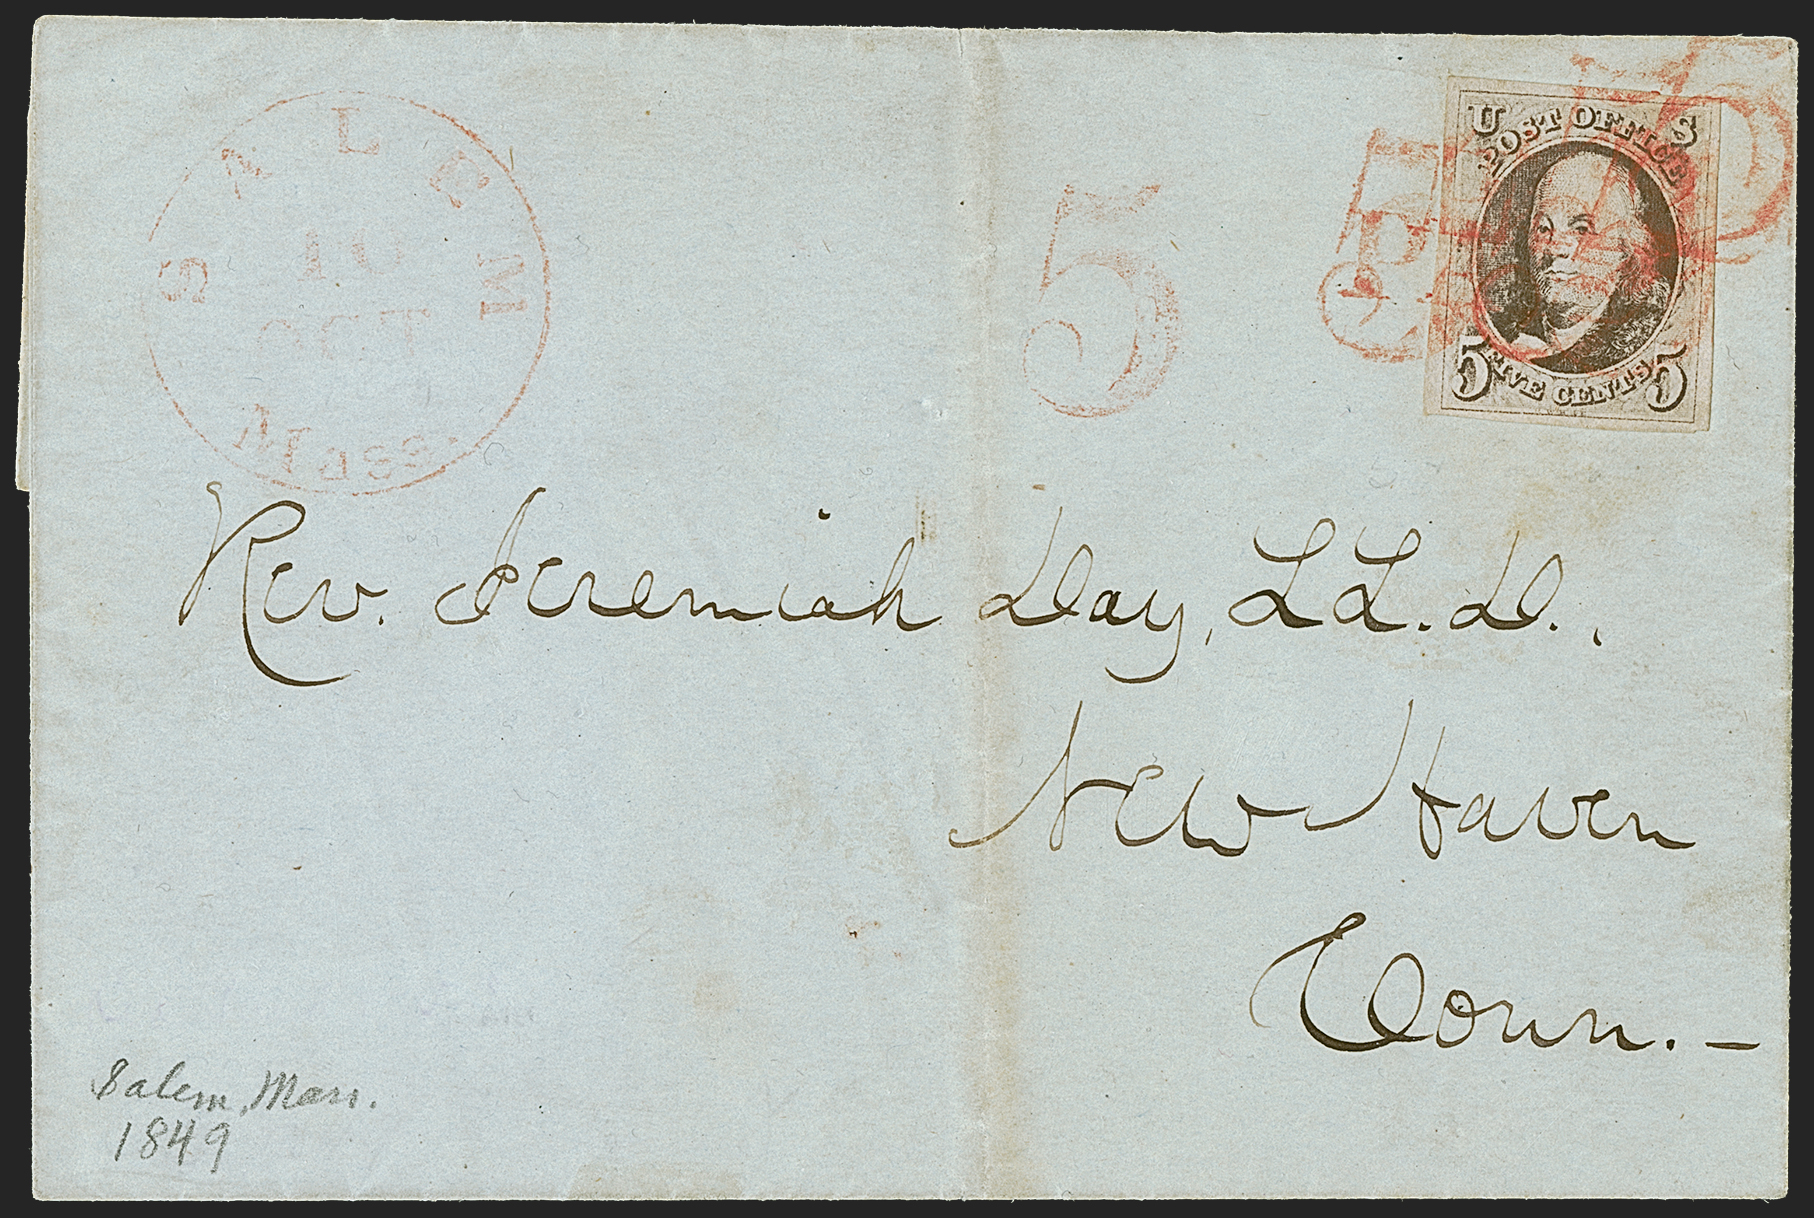 SALEM
10
OCT
MASS.
5
PAID
U S
POST OFFICE
5 FIVE CENTS 5
Rev. Jeremiah Day, LL. D.,
New Haven
Conn. –
Salem, Mass.
1849